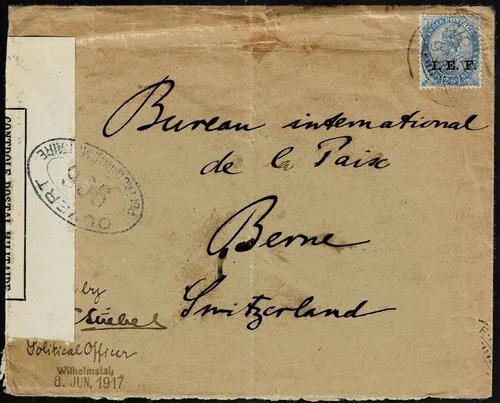 INDIA POSTAGE
I. E. F.
Bureau international
de la Paix
Berne
Switzerland
CONTROLE POSTAL MILITAIRE
OUVERT
MILITAIRE
by
Stiebel
Political Officer
Wilhelmstal
8. JUN. 1917